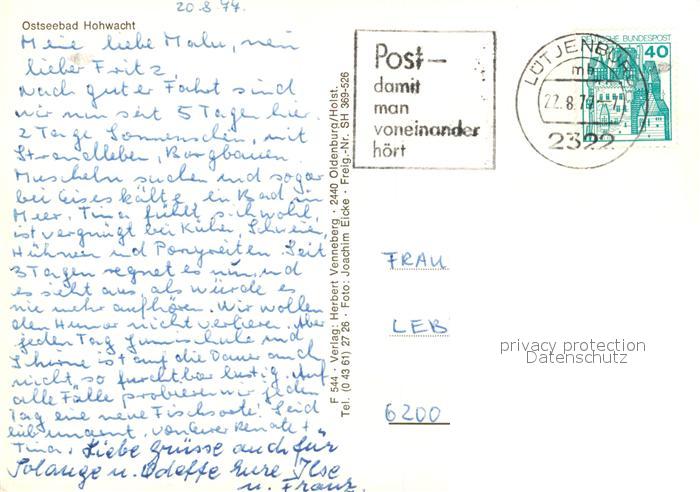 20.8.77.
Ostseebad Hohwacht
Meine liebe Malu, mein
lieber Fritz,
Nach guter Fahrt sind
wir nun seit 5 Tagen hier.
2 Tage Sonnenschein, mit
Strandleben, Burgbauen
Muscheln suchen und sogar
bei Eiseskälte ein Bad im
Meer. Tina fühlt sich wohl,
ist vergnügt bei Kühen, Schweinen,
Hühnern und Ponyreiten. Seit
3 Tagen regnet es nun, und
es sieht aus als würde es
nie mehr aufhören. Wir wollen
den Humor nicht verlieren. Aber
jeden Tag Gummischuhe und
Schirme ist auf die Dauer auch
nicht so furchtbar lustig. Auf
alle Fälle probieren wir jeden
Tag eine neue Fischsorte! Seid
lieb umarmt, von Eurer Renate +
Tina. Liebe Grüsse auch für
Solange u. Odette Eure Ilse
u. Franz.
F 544 · Verlag: Herbert Venneberg · 2440 Oldenburg/Holst.
Tel. (0 43 61) 27 26 · Foto: Joachim Eicke · Freig.-Nr. SH 369-526
Post–
damit
man
voneinander
hört
LÜTJENBURG
mb
22.8.77–7
2322
DEUTSCHE BUNDESPOST
40
FRAU
LEB
6200
privacy protection
Datenschutz